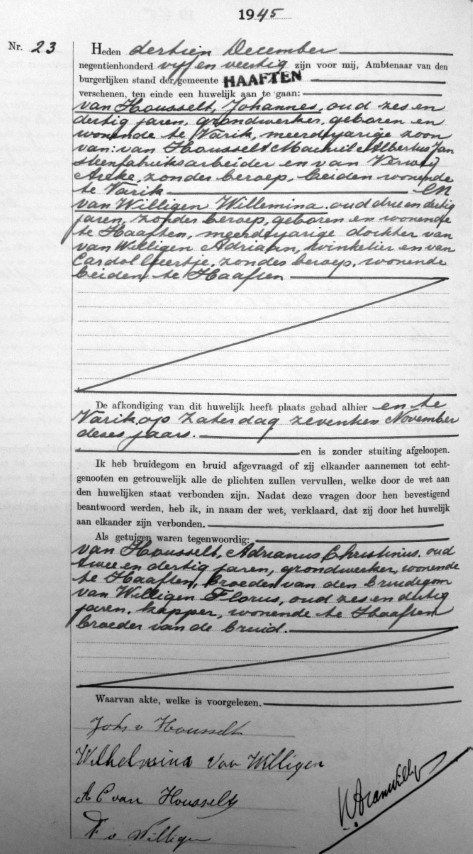 1945
Nr. 23
Heden dertien December
negentienhonderd vijf en veertig zijn voor mij, Ambtenaar van den
burgerlijken stand der gemeente HAAFTEN
verschenen, ten einde een huwelijk aan te gaan:
van Housselt, Johannes, oud zes en
dertig jaren, grondwerker, geboren en
wonende te Varik, meerderjarige zoon
van: van Housselt Albertus Jan
steenfabrieksarbeider en van
zonder beroep, beiden wonende
te Varik en
van Willigen Willemina, oud drie en dertig
jaren, zonder beroep, geboren en wonende
te Haaften, meerderjarige dochter van
van Willigen Adriaan, winkelier en van
Cardol Geertje, zonder beroep, wonende
beiden te Haaften
De afkondiging van dit huwelijk heeft plaats gehad alhier en te
Varik op Zaterdag zeventien November
dezes jaars.
en is zonder stuiting afgeloopen.
Ik heb bruidegom en bruid afgevraagd of zij elkander aannemen tot echt-
genooten en getrouwelijk alle de plichten zullen vervullen, welke door de wet aan
den huwelijken staat verbonden zijn. Nadat deze vragen door hen bevestigend
beantwoord werden, heb ik, in naam der wet, verklaard, dat zij door het huwelijk
aan elkander zijn verbonden.
Als getuigen waren tegenwoordig:
van Housselt, Adrianus Christinus, oud
twee en dertig jaren, grondwerker, wonende
te Haaften, broeder van den bruidegom
van Willigen Florus, oud zes en dertig
jaren, kapper, wonende te Haaften
broeder van de bruid.
Waarvan akte, welke is voorgelezen.
Joh. v Housselt
Wilhelmina van Willigen
A C van Housselt
F. v. Willigen